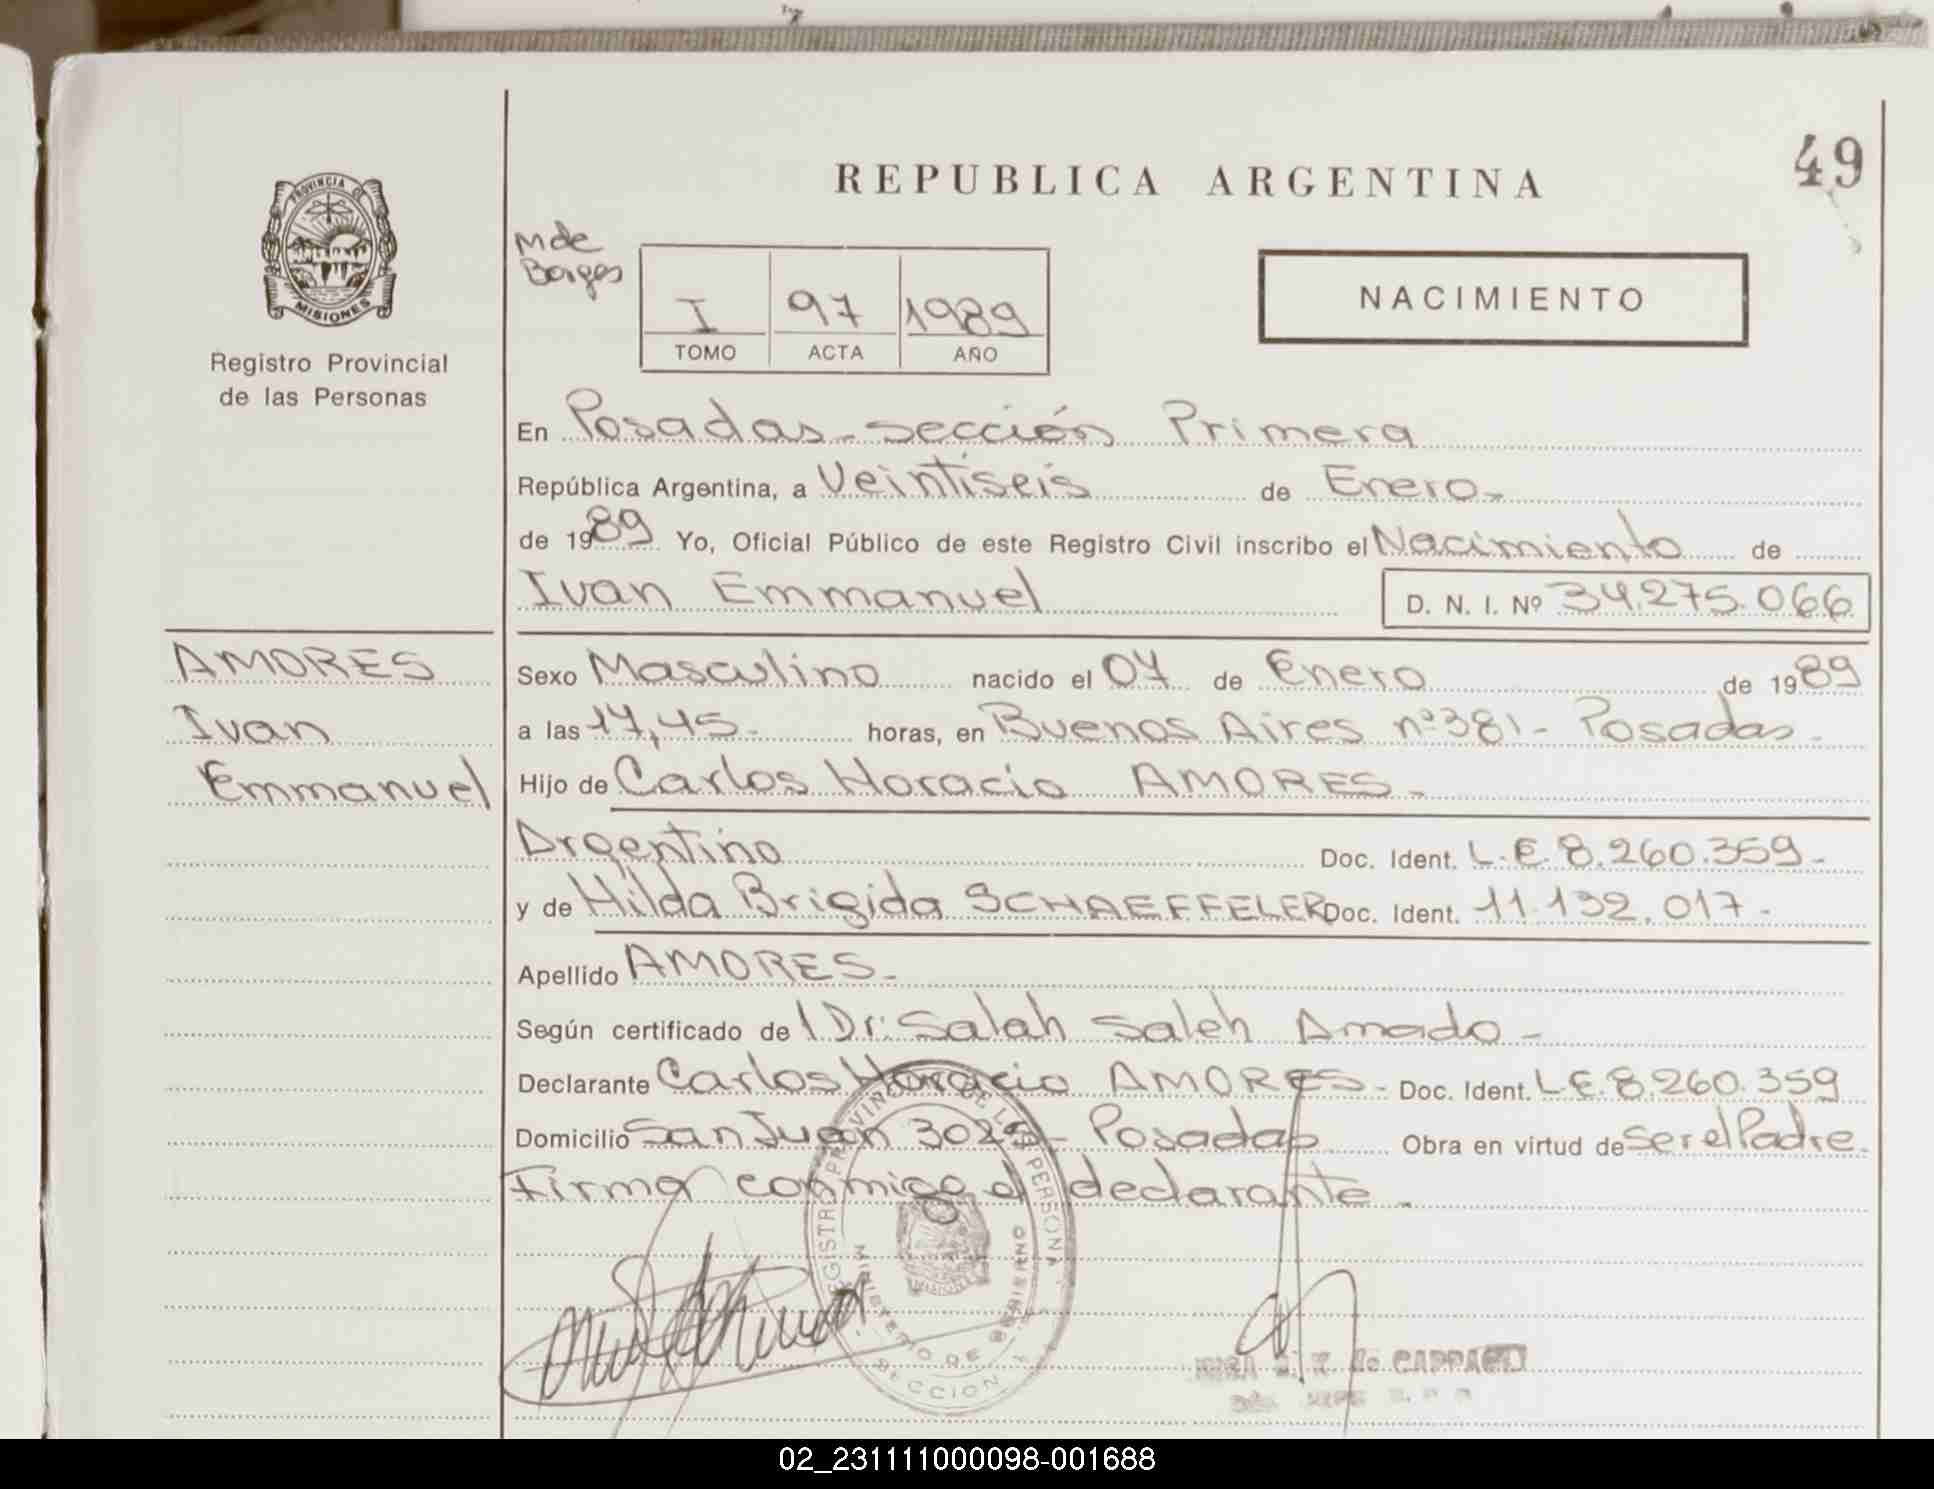 49
REPUBLICA ARGENTINA
PROVINCIA D
MISIONES
Registro Provincial
de las Personas
M de
Borges
I 97 1989
TOMO ACTA AÑO
NACIMIENTO
En Posadas - sección Primera
República Argentina, a Veintiseis de Enero -
de 1989 Yo, Oficial Público de este Registro Civil inscribo el Nacimiento de
Ivan Emmanuel D. N. I. Nº 34.275.066
AMORES
Ivan
Emmanuel
Sexo Masculino nacido el 07 de Enero de 1989
a las 17,45 - horas, en Buenos Aires nº 381 - Posadas -
Hijo de Carlos Horacio AMORES -
Argentino Doc. Ident. L.E. 8.260.359 -
y de Hilda Brigida SCHAEFFELER Doc. Ident. 11.132.017 -
Apellido AMORES -
Según certificado del Dr: Salah Saleh Amado -
Declarante Carlos Horacio AMORES - Doc. Ident. L.E. 8.260.359
Domicilio San Juan 3025 - Posadas Obra en virtud de ser el Padre.
Firma conmigo el declarante -
REGISTRO PROVINCIAL DE LAS PERSONAS
MINISTERIO DE GOBIERNO
SECCION 1
02_231111000098-001688